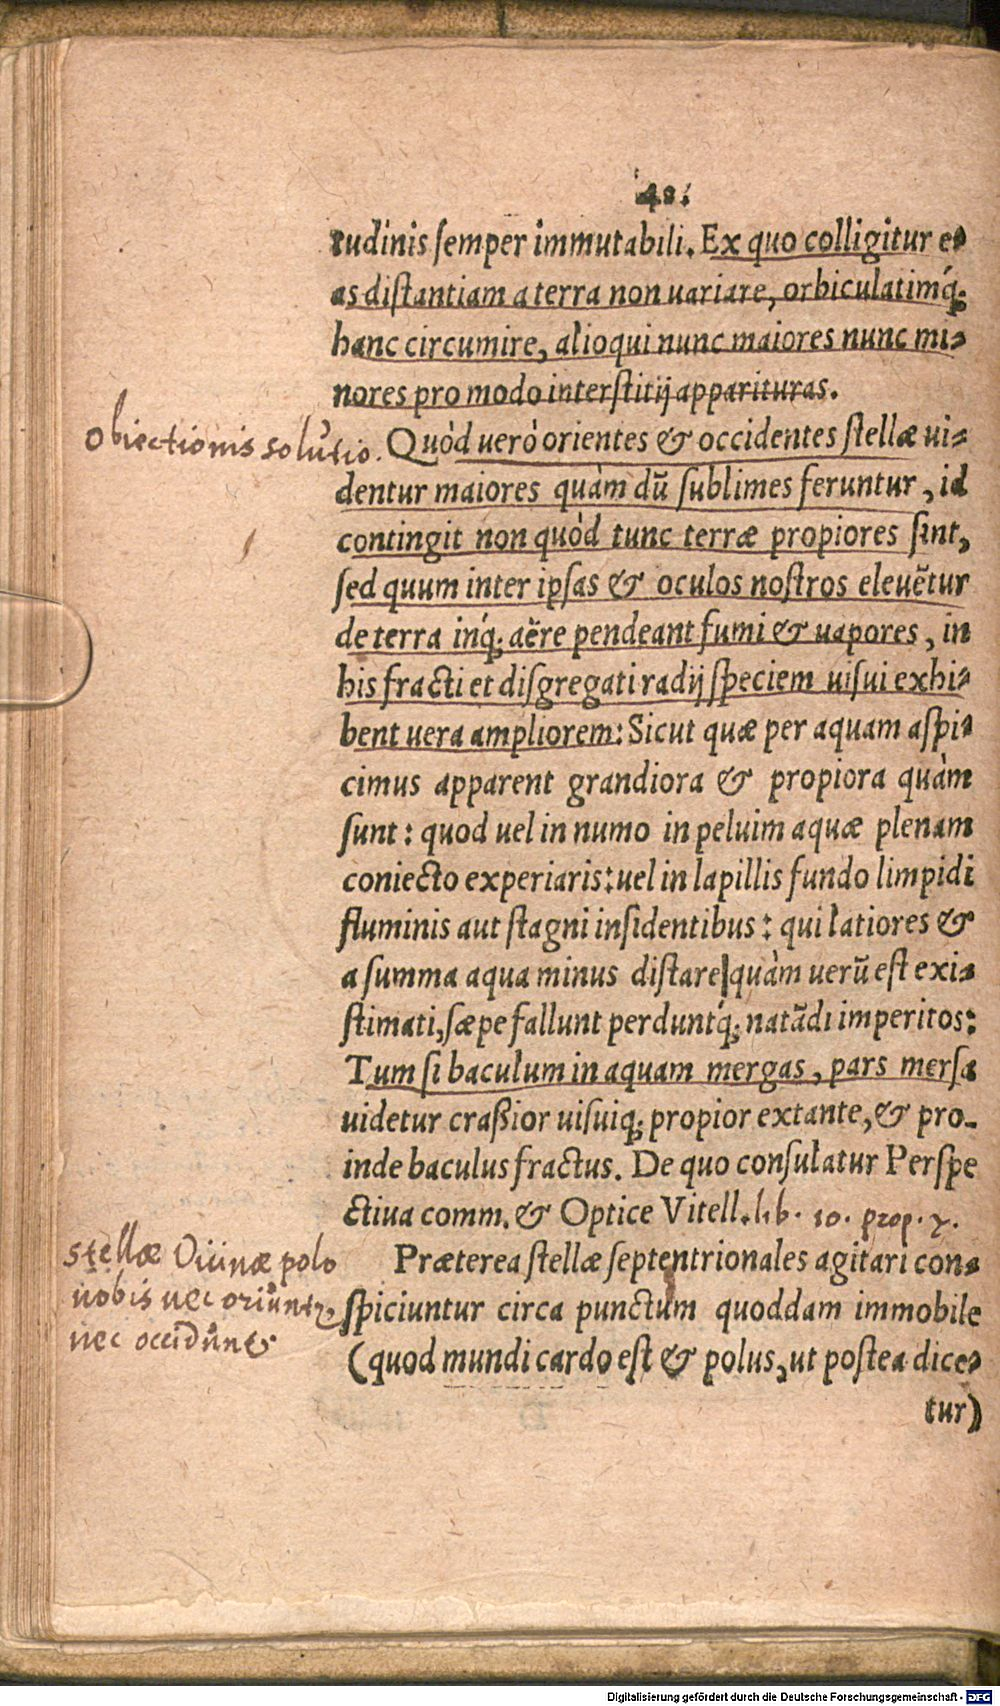 48.
tudinis semper immutabili. Ex quo colligitur e-
as distantiam a terra non uariare, orbiculatimq́;
hanc circumire, alioqui nunc maiores nunc mi-
nores pro modo interstitij apparituras.
Obiectionis solutio.
Quòd uerò orientes & occidentes stellæ ui-
dentur maiores quàm dũ sublimes feruntur, id
contingit non quòd tunc terræ propiores sint,
sed quum inter ipsas & oculos nostros eleuẽtur
de terra inq́; aëre pendeant fumi & uapores, in
his fracti et disgregati radij speciem uisui exhi-
bent uera ampliorem: Sicut quæ per aquam aspi-
cimus apparent grandiora & propiora quàm
sunt: quod uel in numo in peluim aquæ plenam
coniecto experiaris: uel in lapillis fundo limpidi
fluminis aut stagni insidentibus: qui latiores &
a summa aqua minus distare quàm uerũ est exi-
stimati, sæpe fallunt perduntq́; natãdi imperitos:
Tum si baculum in aquam mergas, pars mersa
uidetur craßior uisuiq; propior extante, & pro-
inde baculus fractus. De quo consulatur Perspe
ctiua comm. & Optice Vitell. lib. 10. prop. 7.
Stellæ Vicinæ polo
nobis nec oriuntur
nec occidunt
Præterea stellæ septentrionales agitari con-
spiciuntur circa punctum quoddam immobile
(quod mundi cardo est & polus, ut postea dice-
tur)
Digitalisierung gefördert durch die Deutsche Forschungsgemeinschaft - DFG